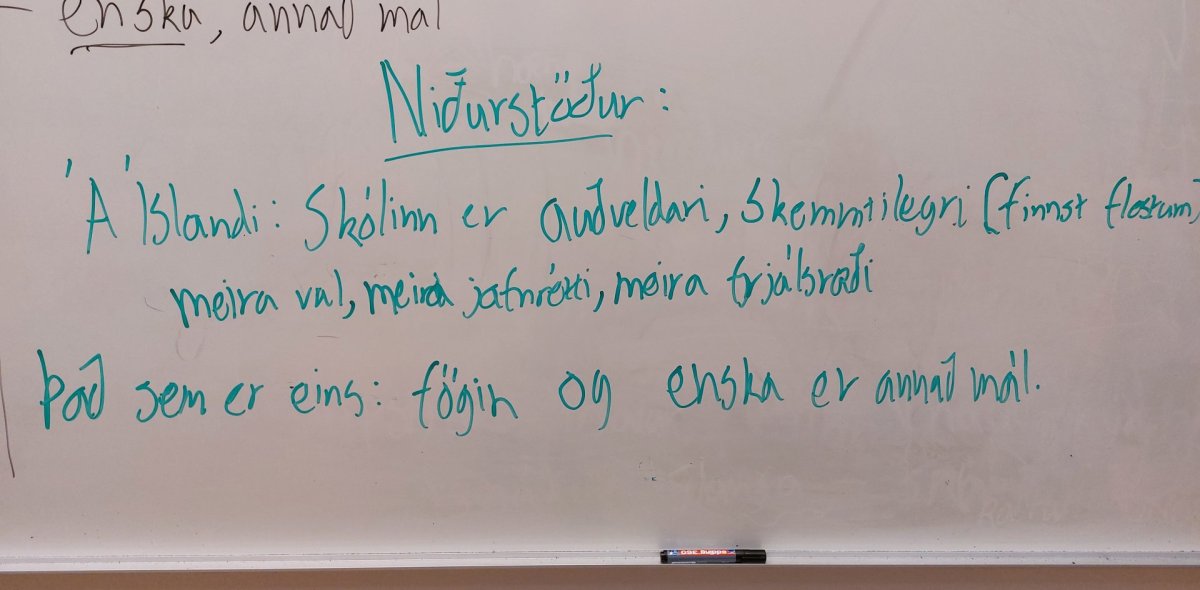 - enska, annað mál
Niðurstöður:
Á Íslandi: Skólinn er auðveldari, skemmtilegri (finnst flestum)
meira val, meira jafnrétti, meira frjálsræði
Það sem er eins: fögin og enska er annað mál.